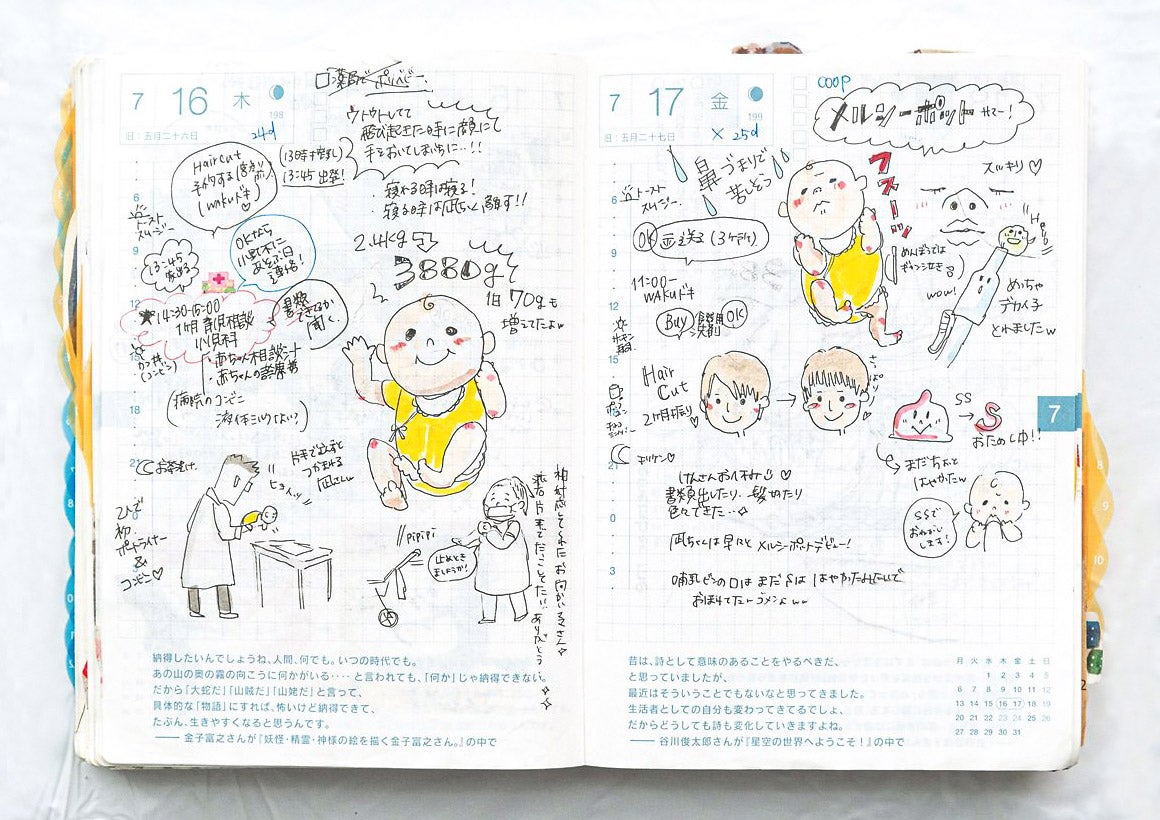 7 16 木
198
旧:五月二十六日
24d
薬局で ポリベビー
ウトウトしてて
飛び起きた時に顔に
手をおいてしまいちに…!!
(13時半授乳)
13:45 出発!
・寝れる時は寝る!
・寝る時は凪ちゃんと離す!!
Hair cut
予約する
(WAKUドキ)
トースト
スムージー
OKなら
あそぶ日
連絡!
13:45
14:30-15:00
1ヶ月 育児相談
小児科
・赤ちゃん相談シート
・赤ちゃんの診療券
書類
できてるか
聞く。
カツ丼
(コンビニ)
病院のコンビニ
液体ミルクないよ?
2.4kg
3880gで
1日70gも
増えてたよw
お茶漬け
片手で
つかまれる
凪さん
ヒョイッ
2人で
初
コンビニ♡
PiPiPi
止めとき
ましょうか!
6
9
12
15
18
21
0
3
納得したいんでしょうね、人間、何でも。いつの時代でも。
あの山の奥の霧の向こうに何かがいる‥‥と言われても、「何か」じゃ納得できない。
だから「大蛇だ」「山賊だ」「山姥だ」と言って、
具体的な「物語」にすれば、怖いけど納得できて、
たぶん、生きやすくなると思うんです。
―― 金子富之さんが『妖怪・精霊・神様の絵を描く金子富之さん。』の中で
7 17 金
199
旧:五月二十七日
× 25d
COOP
メルシーポット サマー!
鼻づまりで
苦しそう
スッキリ♡
トースト
スムージー
OK
11:00-
WAKUドキ
Buy
洗剤
OK
wow!
Hello
めっちゃ
デカイ子
とれましたw
Hair
Cut
2ヶ月振り
さっぱり
SS
S
おためし中!!
まだちょっと
はやかったw
SSで
おねがい
します!
けんさんお休み♡
書類出したり、髪切たり
色々できた…☆
凪ちゃんは早くも メルシーポットデビュー!
哺乳ビンの口は まだ Sは はやかったみたいで
おぼれてたーゴメンよww
6
9
12
15
18
21
0
3
7
昔は、詩として意味のあることをやるべきだ、
と思っていましたが、
最近はそういうことでもないなと思ってきました。
生活者としての自分も変わってきてるでしょ、
だからどうしても詩も変化していきますよね。
―― 谷川俊太郎さんが『星空の世界へようこそ!』の中で
月 火 水 木 金 土 日
1 2 3 4 5
6 7 8 9 10 11 12
13 14 15 16 17 18 19
20 21 22 23 24 25 26
27 28 29 30 31